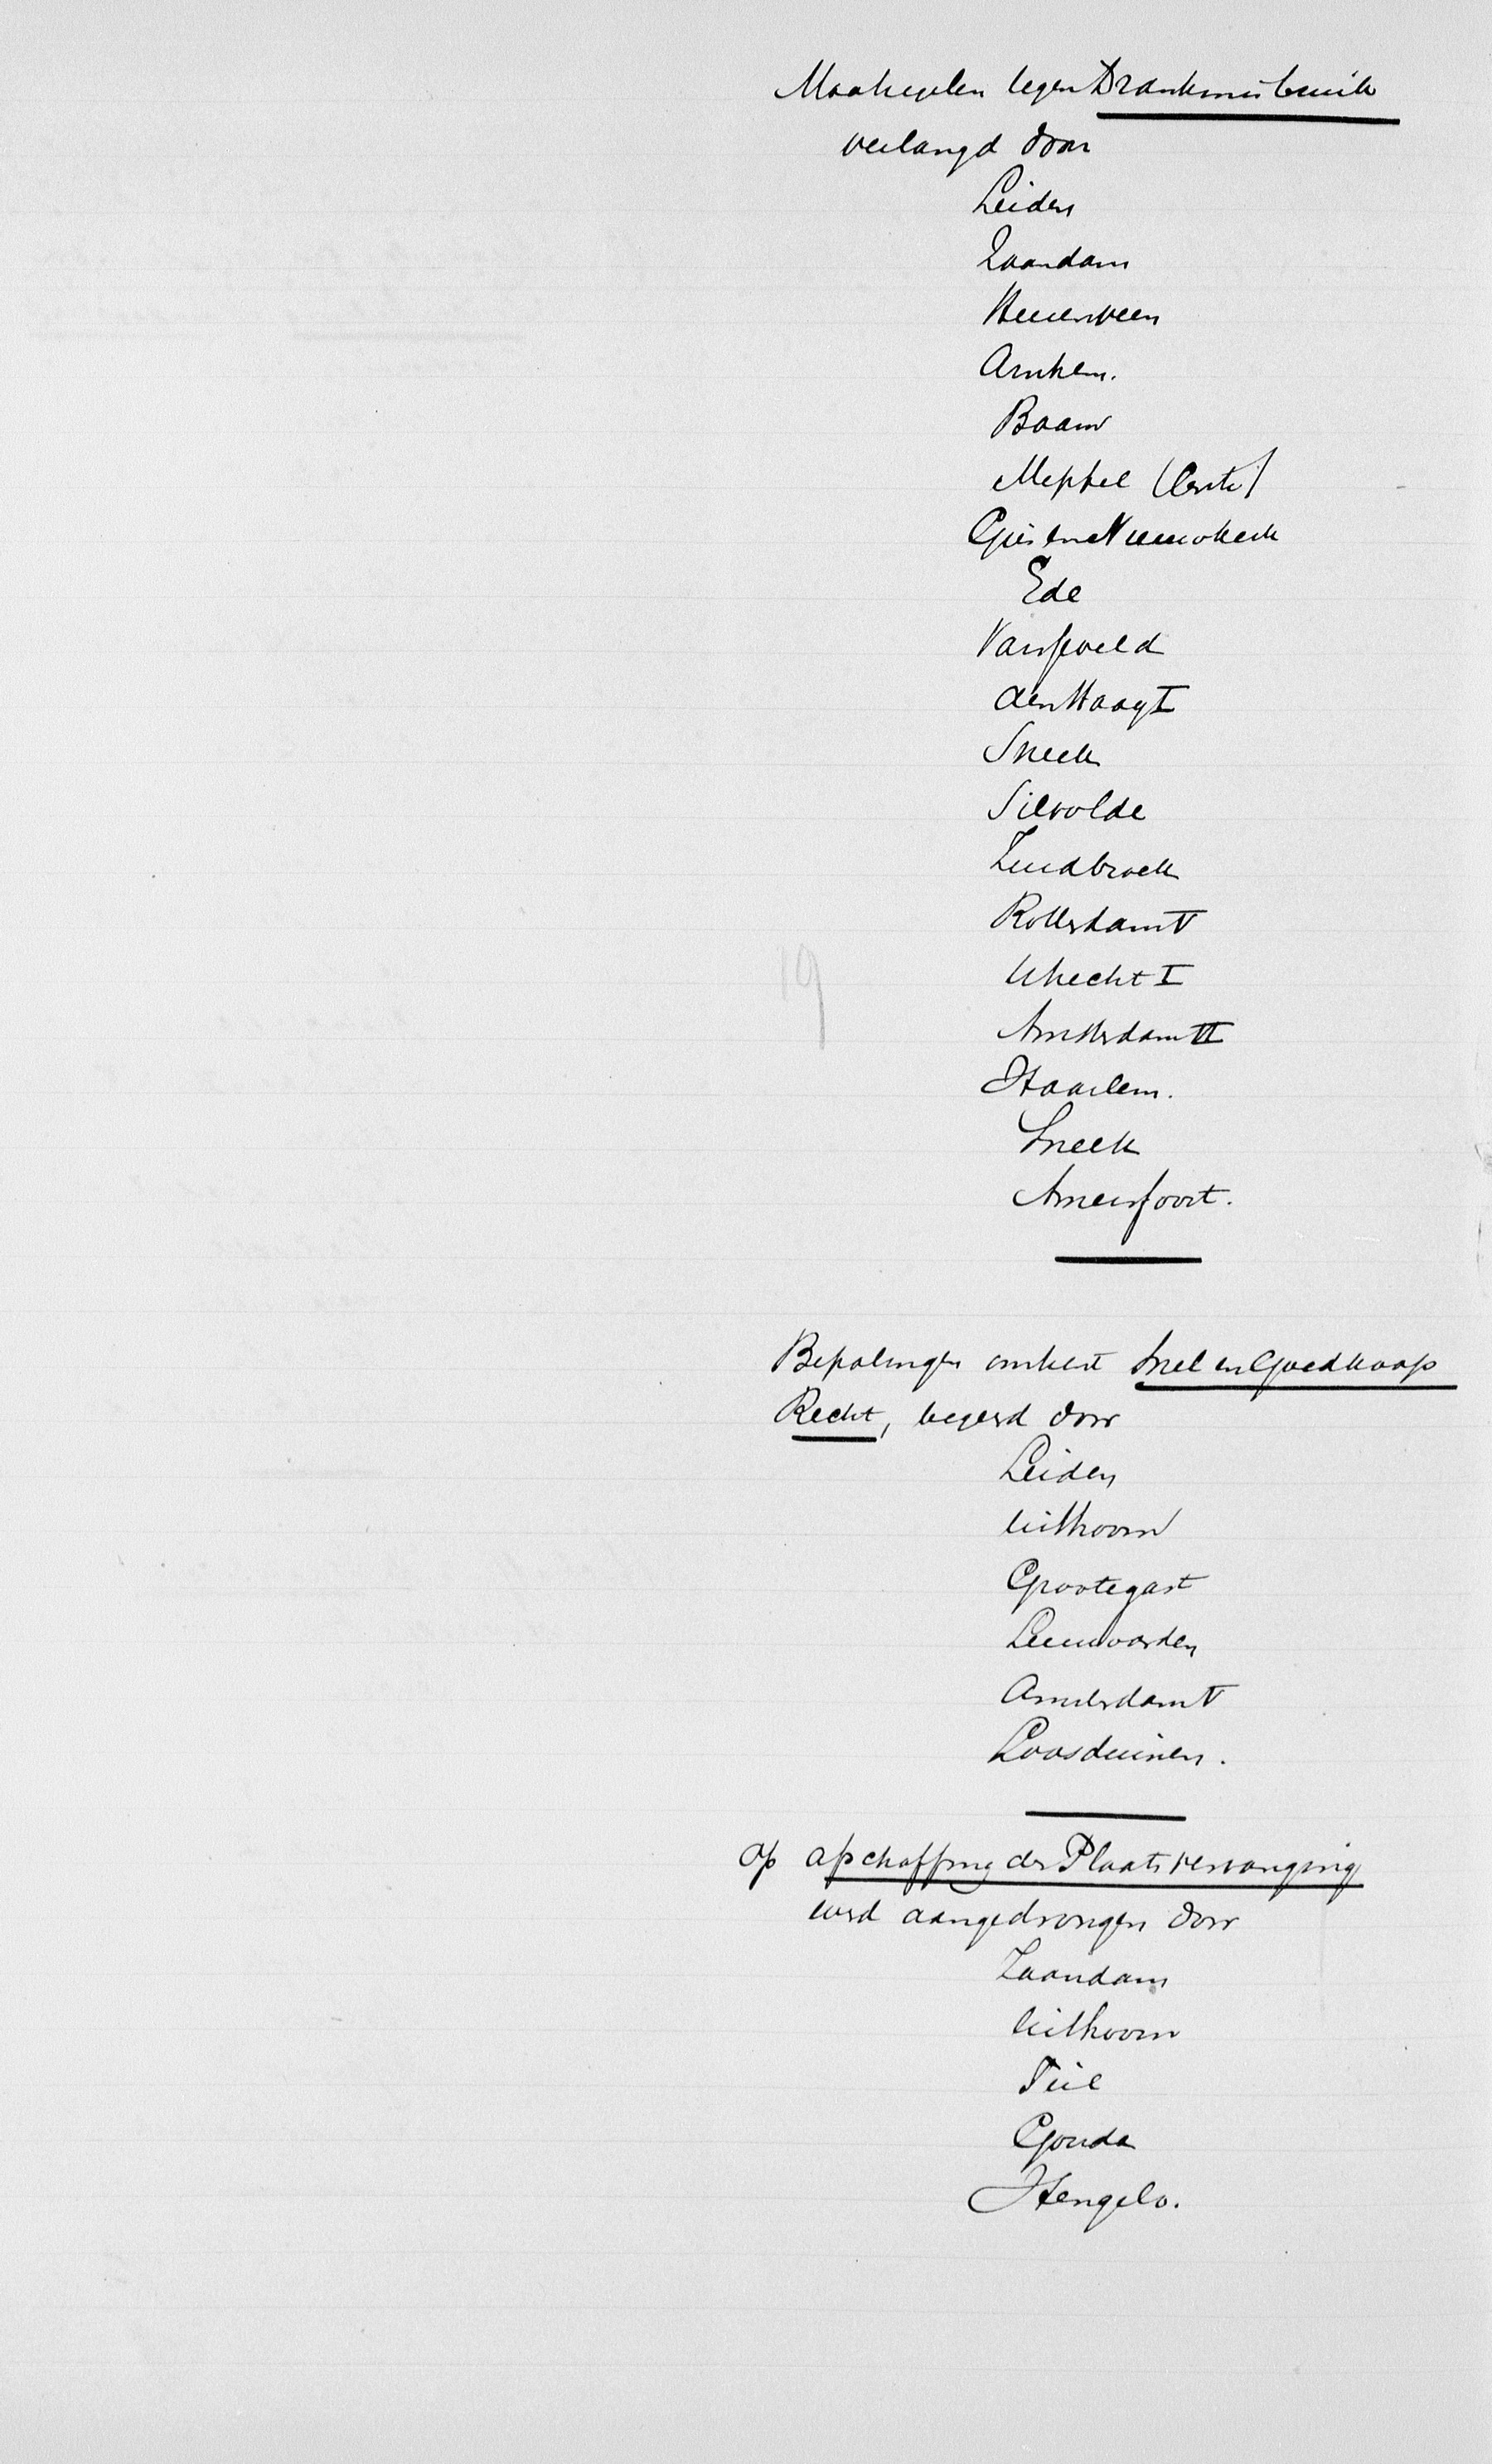 Maatregelen tegen Drankmisbruik
verlangd door
Leiden
Zaandam
Heerenveen
Arnhem.
Baarn
Meppel
Giesen Nieuwkerk
Ede
Varsseveld
den Haag I
Sneek
Silvolde
Zuidbroek
Rotterdam V
Utrecht I
19
Amsterdam VI
Haarlem.
Sneek
Amersfoort.
Bepalingen omtrent Snel en Goedkoop
Recht, begeerd door
Leiden
Uithoorn
Grootegast
Leeuwarden
Amsterdam V
Loosduinen.
Op afschaffing der Plaatsvervanging
werd aangedrongen door
Zaandam
Uithoorn
Tiel
Gouda
Hengelo.